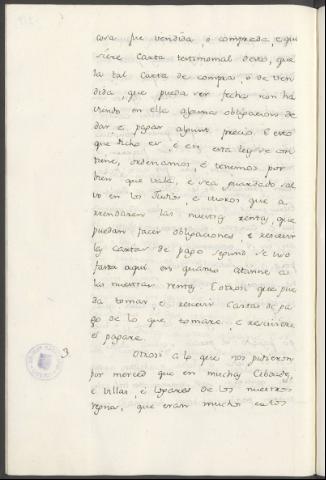 cosa fue vendida, o comprada, e qui
siere Carta testimonial desto, que
la tal Carta de compra, o de ven
dida, que pueda ser fecha non ha
viendo en ella alguna obligacion de
dar e pagar algunt precio. E esto
que dicho es, e en esta ley se con
tiene, ordenamos, e tenemos por
bien que vala, e sea guardado sal
vo en los Judios, e moros que a
rrendaren las nuestras rentas, que
puedan facer obligaciones, e rescivir
las cartas de pago segund se uso
fasta aqui en quanto atanne a
las nuestras rentas. E otrosi que pue
da tomar, e rescivir Cartas de pa
go de lo que tomare, e resciviere
e pagare.
3 Otrosi a lo que nos pidieron
por merced que en muchas Cibdades,
e villas, e logares de los nuestros
regnos, que eran muchos